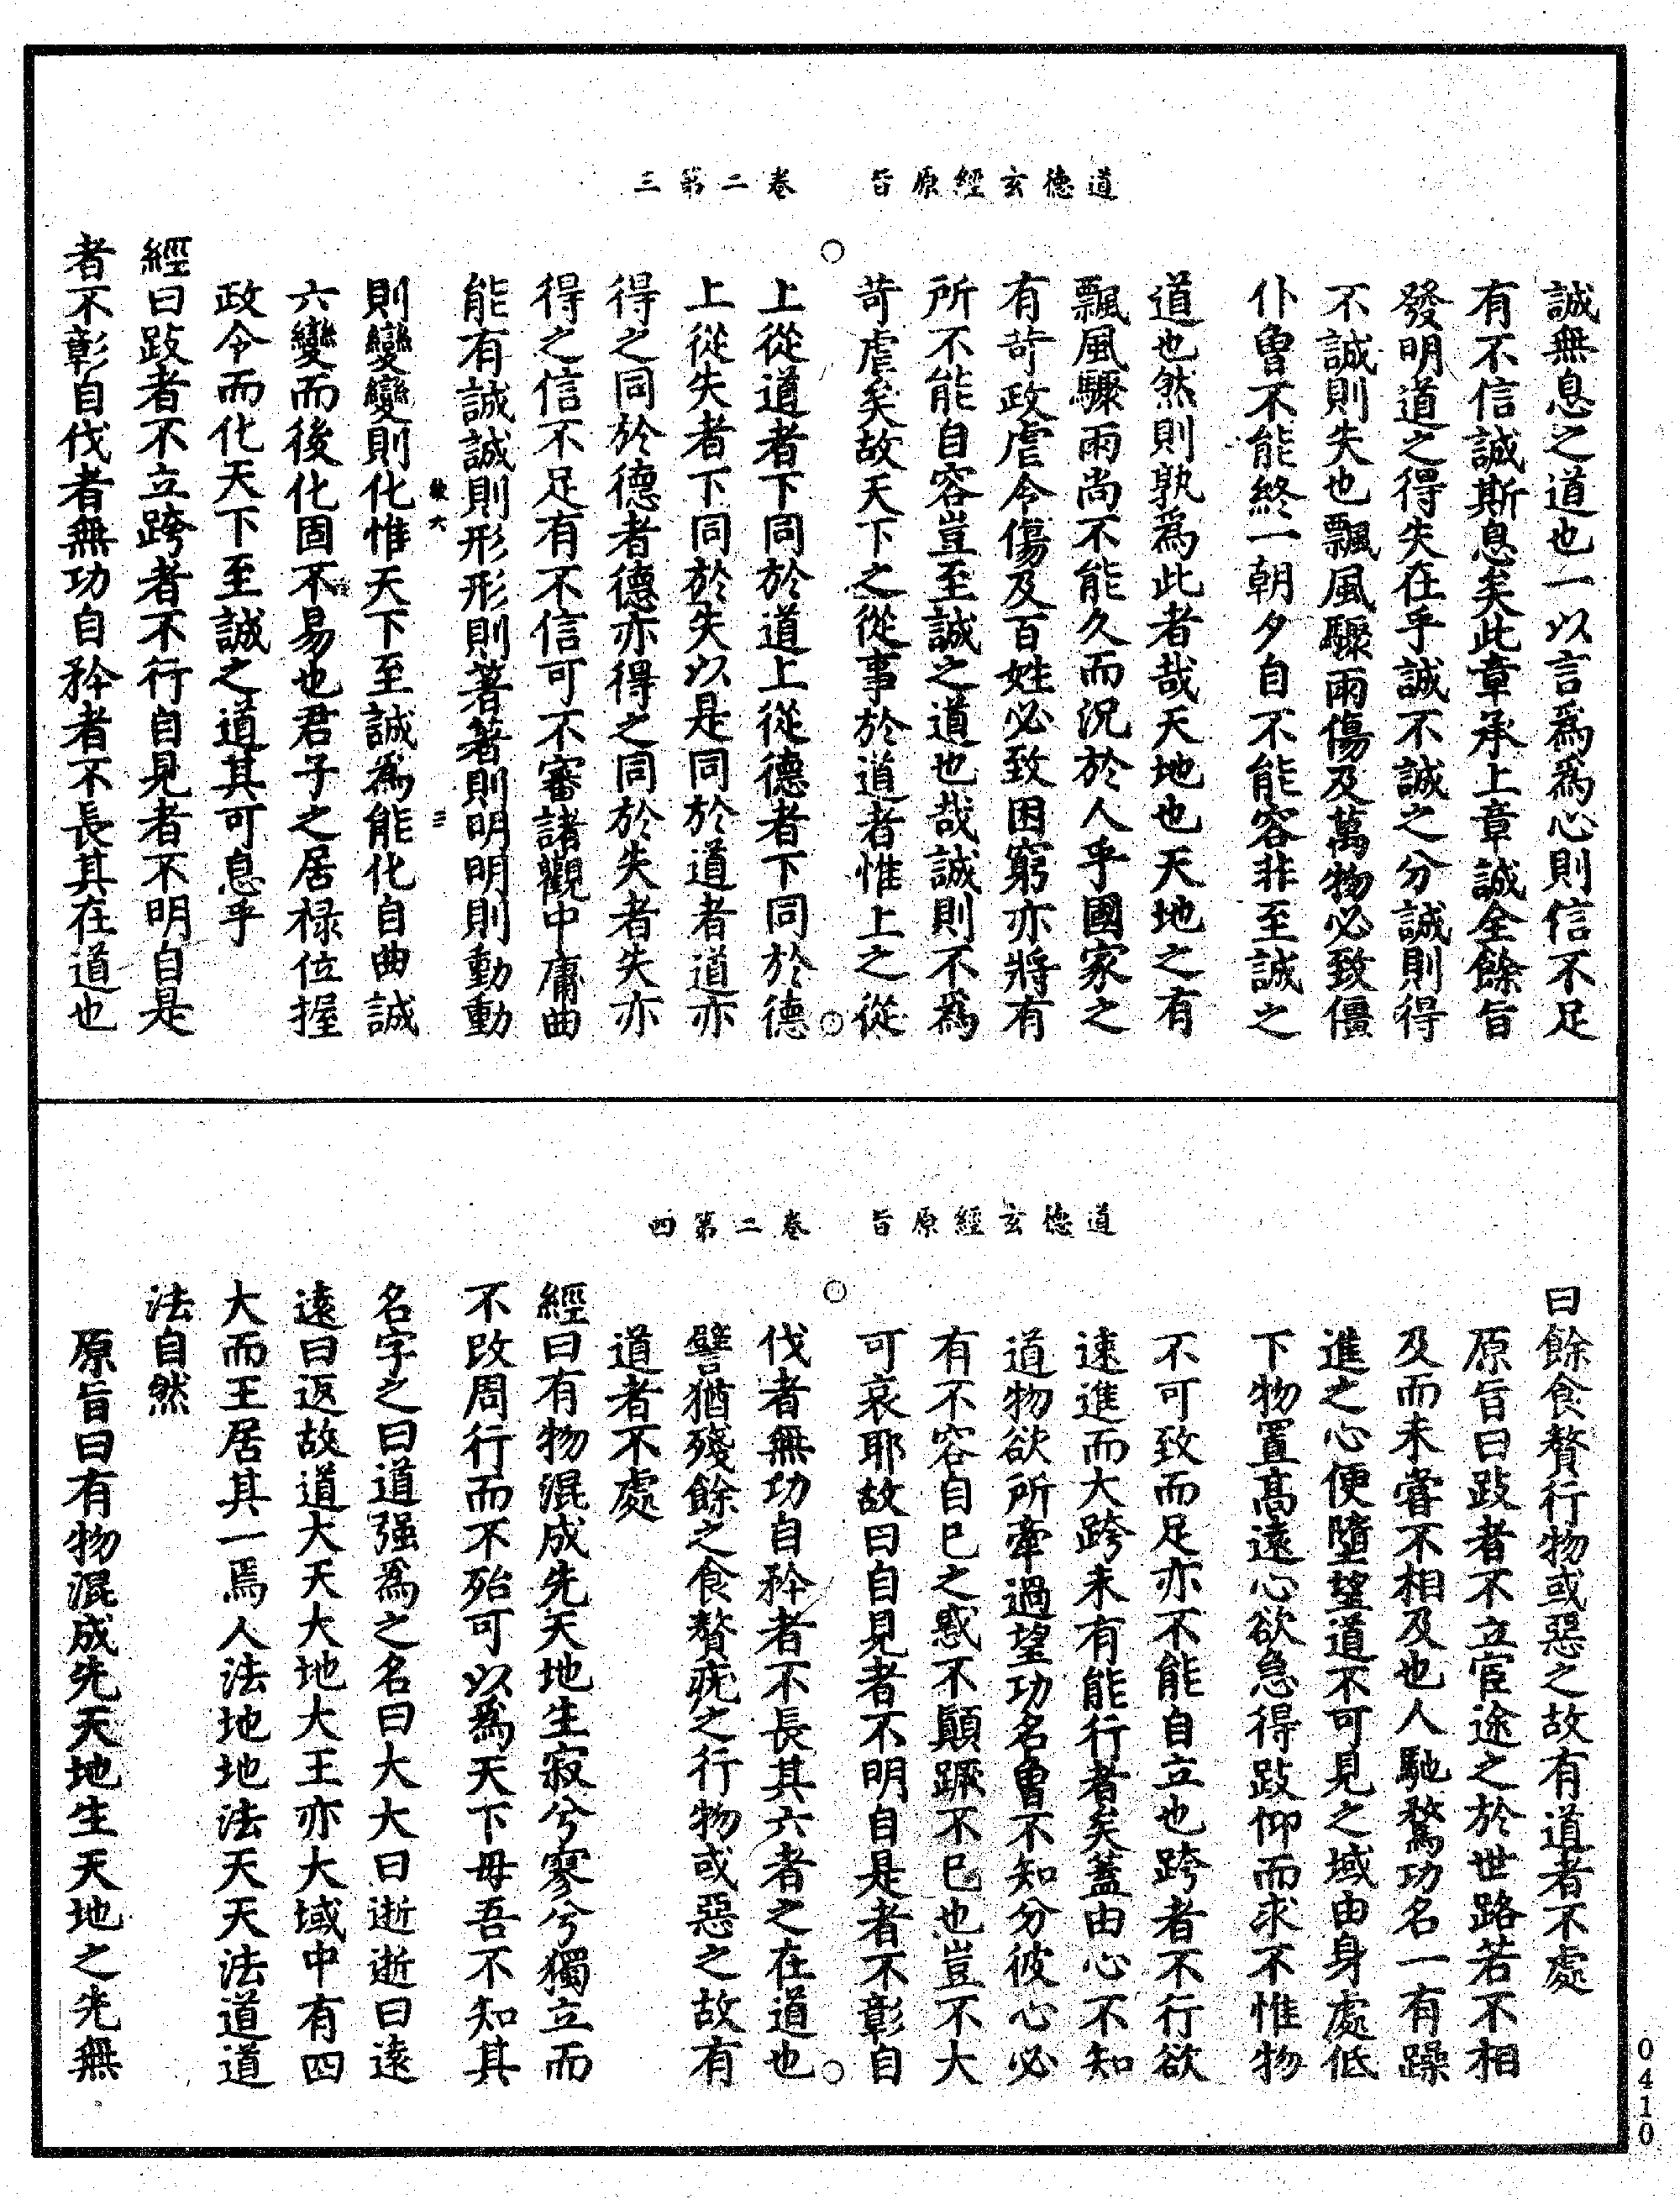 道德玄經原旨　卷二第三
誠無息之道也一以言爲爲心則信不足
有不信誠斯息矣此章承上章誠全餘旨
發明道之得失在乎誠不誠之分誠則得
不誠則失也飄風驟雨傷及萬物必致僵
仆曾不能終一朝夕自不能容非至誠之
道也然則孰爲此者哉天地也天地之有
飄風驟雨尚不能久而況於人乎國家之
有苛政虐令傷及百姓必致困窮亦將有
所不能自容豈至誠之道也哉誠則不爲
苛虐矣故天下之從事於道者惟上之從
上從道者下同於道上從德者下同於德
上從失者下同於失以是同於道者道亦
得之同於德者德亦得之同於失者失亦
得之信不足有不信可不審諸觀中庸曲
能有誠誠則形形則著著則明明則動動
六　三
則變變則化惟天下至誠爲能化自曲誠
六變而後化固不易也君子之居祿位握
政令而化天下至誠之道其可息乎
經曰跂者不立跨者不行自見者不明自是
者不彰自伐者無功自矜者不長其在道也
道德玄經原旨　卷二第四
曰餘食贅行物或惡之故有道者不處
原旨曰跂者不立宦途之於世路若不相
及而未嘗不相及也人馳騖功名一有躁
進之心便墮望道不可見之域由身處低
下物置高遠心欲急得跂仰而求不惟物
不可致而足亦不能自立也跨者不行欲
速進而大跨未有能行者矣蓋由心不知
道物欲所牽過望功名曾不知分彼心必
有不容自已之惑不顛蹶不已也豈不大
可哀耶故曰自見者不明自是者不彰自
伐者無功自矜者不長其六者之在道也
譬猶殘餘之食贅疣之行物或惡之故有
道者不處
經曰有物混成先天地生寂兮寥兮獨立而
不改周行而不殆可以爲天下母吾不知其
名字之曰道强爲之名曰大大曰逝逝曰遠
遠曰返故道大天大地大王亦大域中有四
大而王居其一焉人法地地法天天法道道
法自然
原旨曰有物混成先天地生天地之先無
0410